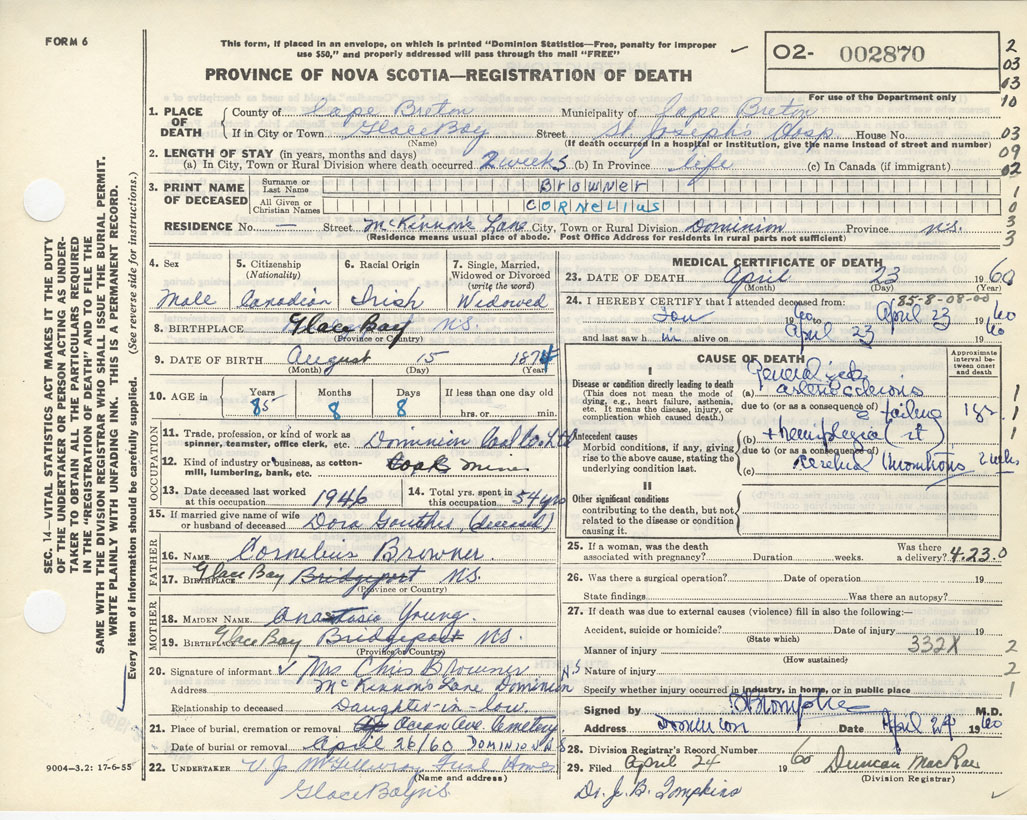 FORM 6
This form, if placed in an envelope, on which is printed "Dominion Statistics—Free, penalty for improper
use $50," and properly addressed will pass through the mail "FREE"
PROVINCE OF NOVA SCOTIA—REGISTRATION OF DEATH
02- 002870
For use of the Department only
2
03
03
10
03
09
02
1
0
3
3
1. PLACE OF DEATH
County of Cape Breton Municipality of Cape Breton
If in City or Town Glace Bay Street St. Joseph's Hosp. House No.
(Name) (If death occurred in a hospital or institution, give the name instead of street and number)
2. LENGTH OF STAY (in years, months and days)
(a) In City, Town or Rural Division where death occurred 2 weeks (b) In Province life (c) In Canada (if immigrant)
3. PRINT NAME OF DECEASED
Surname or Last Name Browner
All Given or Christian Names CORNELIUS
RESIDENCE No. — Street McKinnon's Lane City, Town or Rural Division Dominion Province N.S.
(Residence means usual place of abode. Post Office Address for residents in rural parts not sufficient)
4. Sex
Male
5. Citizenship (Nationality)
Canadian
6. Racial Origin
Irish
7. Single, Married, Widowed or Divorced (write the word)
Widowed
8. BIRTHPLACE Glace Bay N.S.
(Province or Country)
9. DATE OF BIRTH August 15 1874
(Month) (Day) (Year)
10. AGE in
Years 85
Months 8
Days 8
If less than one day old
hrs. or min.
OCCUPATION
11. Trade, profession, or kind of work as spinner, teamster, office clerk, etc. Dominion Coal Co. Ltd
12. Kind of industry or business, as cotton-mill, lumbering, bank, etc. mines
13. Date deceased last worked at this occupation 1946
14. Total yrs. spent in this occupation 54 yrs
15. If married give name of wife or husband of deceased Dora (deceased)
FATHER
16. NAME Cornelius Browner
17. BIRTHPLACE Glace Bay Bridgeport N.S.
(Province or Country)
MOTHER
18. MAIDEN NAME Anastasia Young
19. BIRTHPLACE Glace Bay Bridgeport N.S.
(Province or Country)
20. Signature of informant √ Mrs. Chris Browner
Address McKinnon's Lane Dominion N.S
Relationship to deceased Daughter-in-law
21. Place of burial, cremation or removal Ocean Ave Cemetery
Date of burial or removal April 26/60 DOMINION N.S
22. UNDERTAKER V J McGillivray Funl Homes
(Name and address)
Glace Bay N.S.
MEDICAL CERTIFICATE OF DEATH
23. DATE OF DEATH April 23 1960
(Month) (Day) (Year)
85-8-08-00
24. I HEREBY CERTIFY that I attended deceased from:
Jan 1960 to April 23 1960
and last saw h im alive on April 23 60
CAUSE OF DEATH
Approximate interval between onset and death
I
Disease or condition directly leading to death
(This does not mean the mode of dying, e.g., heart failure, asthenia, etc. It means the disease, injury, or complication which caused death.)
(a) Generalized
due to (or as a consequence of)
Antecedent causes
Morbid conditions, if any, giving rise to the above cause, stating the underlying condition last.
(b) + hemiplegia
due to (or as a consequence of)
(c) cerebral thrombosis 2 weeks
1
1
1
II
Other significant conditions
contributing to the death, but not related to the disease or condition causing it.
25. If a woman, was the death associated with pregnancy? Duration weeks. Was there a delivery? 4.23.0
26. Was there a surgical operation? Date of operation 19
State findings Was there an autopsy?
27. If death was due to external causes (violence) fill in also the following:—
Accident, suicide or homicide? Date of injury 19
(State which)
Manner of injury 332X
(How sustained)
Nature of injury
Specify whether injury occurred in industry, in home, or in public place
2
2
1
Signed by M.D.
Address Dominion Date April 24 1960
28. Division Registrar's Record Number
29. Filed April 24 1960 Duncan MacRae
(Division Registrar)
Dr. J. B. Tompkins
SEC. 14—VITAL STATISTICS ACT MAKES IT THE DUTY
OF THE UNDERTAKER OR PERSON ACTING AS UNDER-
TAKER TO OBTAIN ALL THE PARTICULARS REQUIRED
IN THE "REGISTRATION OF DEATH" AND TO FILE THE
SAME WITH THE DIVISION REGISTRAR WHO SHALL ISSUE THE BURIAL PERMIT.
WRITE PLAINLY WITH UNFADING INK. THIS IS A PERMANENT RECORD.
Every item of information should be carefully supplied. (See reverse side for instructions.)
9004-3.2: 17-6-55